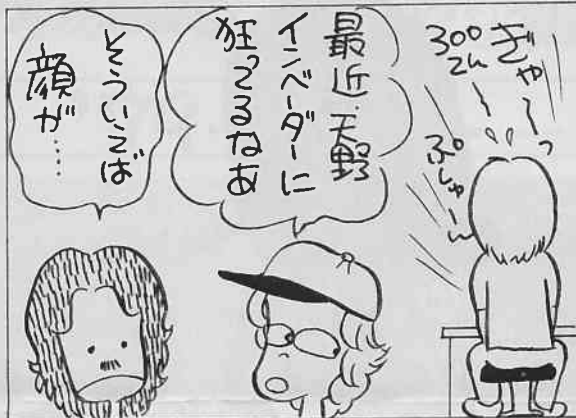 ぎゃーっ
300てん
ぷしゅーん
最近、天野
インベーダーに
狂ってるなあ
そういえば
顔が……